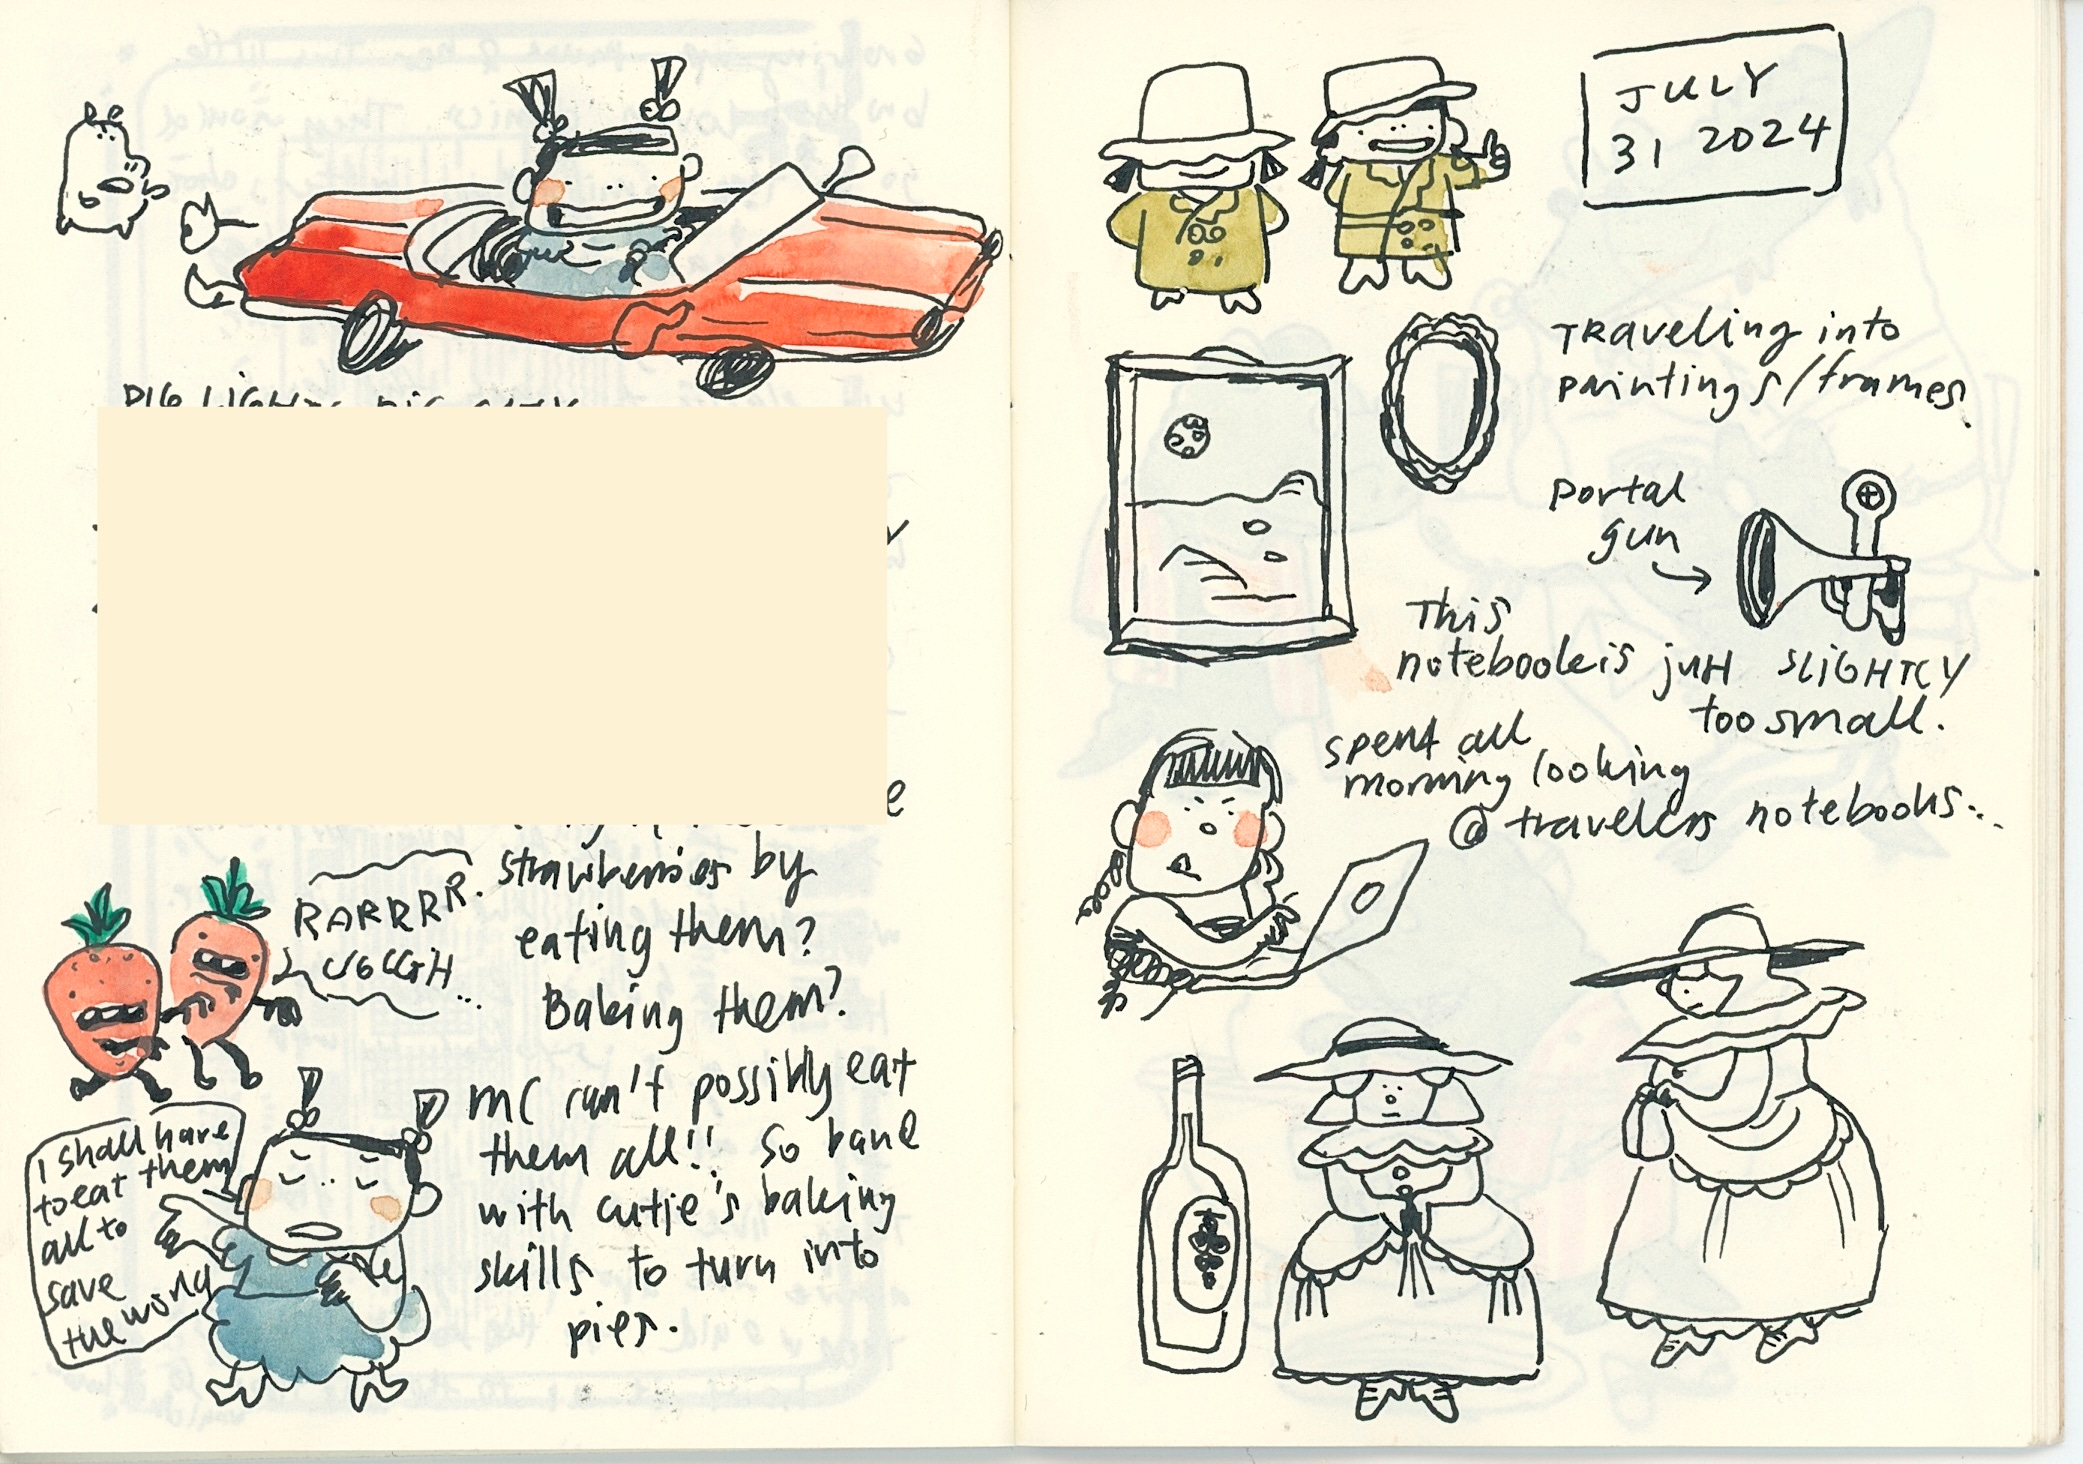 BIG LIGHTS BIG CITY
strawberries by
eating them?
Baking them?
RARRRR.
UGGGH...
MC can't possibly eat
them all!! So bake
with cutie's baking
skills to turn into
pies.
I shall have
to eat them
all to
save
the world
JULY
31 2024
Traveling into
paintings/frames.
Portal
gun
This
notebook is just SLIGHTLY
too small.
spent all
morning looking
@ travelers notebooks...